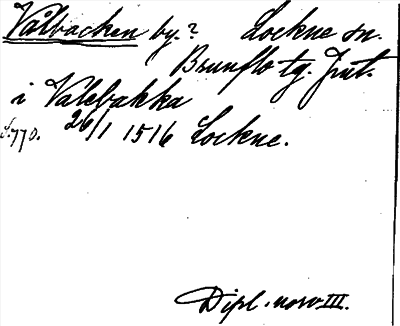 Vålbacken by.? Lockne sn.
Brunflo tg. Jmt.
i Valebakka
S. 770. 26/1 1516 Lockne.
Dipl. norv III.